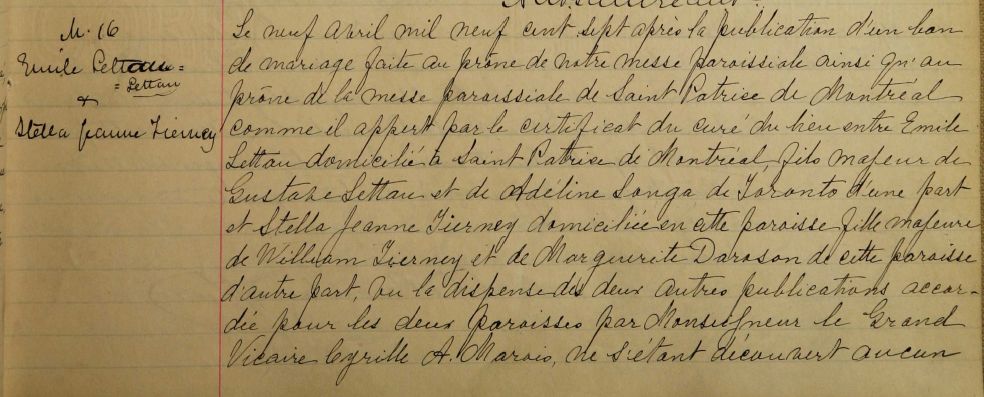 M. 16
Emile Lettau =
= Lettau
&
Stella Jeanne Tierney
Le neuf Avril mil neuf cent sept après la publication d'un ban
de mariage faite au prône de notre messe paroissiale ainsi qu'au
prône de la messe paroissiale de Saint Patrise de Montréal
comme il appert par le certificat du curé du lieu entre Emile
Lettau domicilié à Saint Patrise de Montréal, fils majeur de
Gustave Lettau et de Adéline Longa de Toronto d'une part
et Stella Jeanne Tierney domiciliée en cette paroisse fille majeure
de William Tierney et de Marguerite Darason de cette paroisse
d'autre part, vu la dispense des deux autres publications accor-
dée pour les deux paroisses par Monseigneur le Grand
Vicaire Cyrille A. Marois, ne s'étant découvert aucun